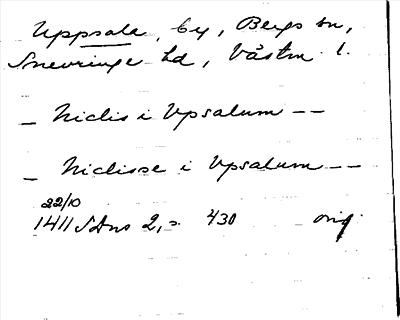 Uppsala, by, Bergs sn,
Snevringe hd, Västm. l.
_ Niclis i Vpsalum --
_ Niclisse i Vpsalum --
22/10
1411 SDns 2, s. 430 orig.